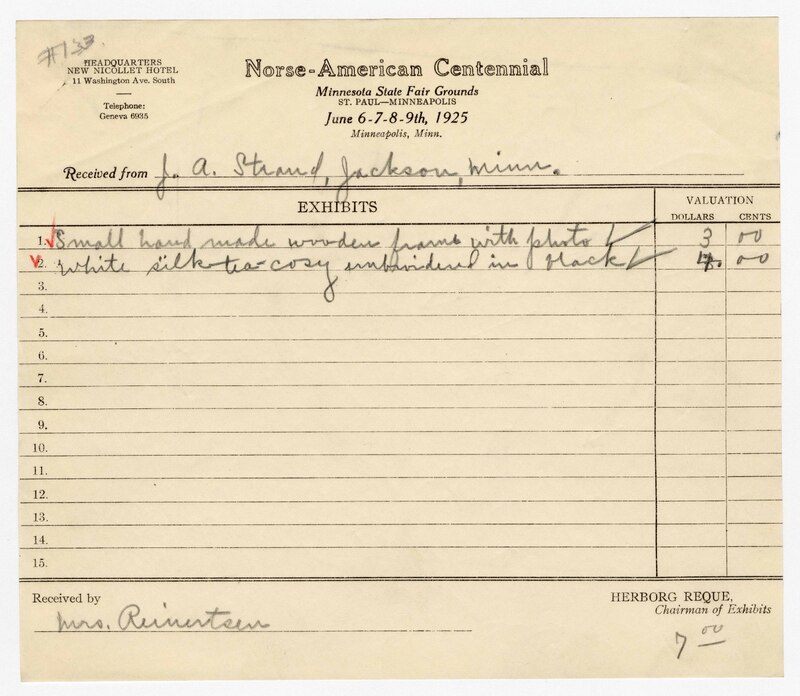 #133.
HEADQUARTERS
NEW NICOLLET HOTEL
11 Washington Ave. South
Telephone:
Geneva 6935
Norse-American Centennial
Minnesota State Fair Grounds
ST. PAUL—MINNEAPOLIS
June 6-7-8-9th, 1925
Minneapolis, Minn.
Received from J. A. Strand, Jackson, Minn.
EXHIBITS VALUATION
DOLLARS CENTS
1. Small hand made wooden frame with photo 3 00
2. White silk tea-cosy embroidered in black 4. 00
3.
4.
5.
6.
7.
8.
9.
10.
11.
12.
13.
14.
15.
Received by
Mrs. Reinertsen
HERBORG REQUE,
Chairman of Exhibits
7 00